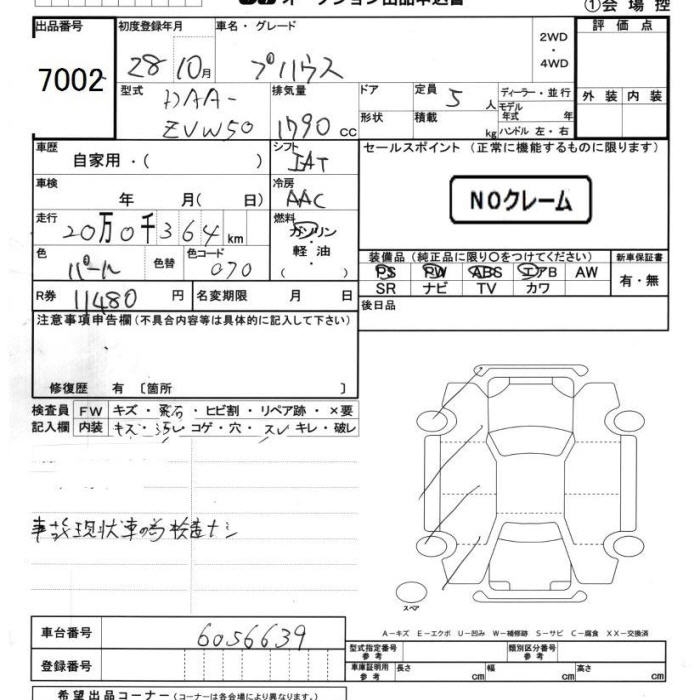 オークション出品申込書
①会場控
出品番号
7002
初度登録年月
28 10月
車名・グレード
プリウス
2WD
・
4WD
評価点
外装 内装
型式
DAA-
ZVW50
排気量
1790 cc
ドア
形状
定員 5 人
積載 kg
ディーラー・並行
モデル
年式 年
ハンドル 左・右
車歴
自家用・( )
シフト
IAT
セールスポイント(正常に機能するものに限ります)
NOクレーム
車検
年 月( 日)
冷房
AAC
走行
20万0千364 km
燃料
ガソリン
軽油
( )
色
パール
色替
色コード
070
装備品(純正品に限り○をつけてください)
PS PW ABS エアB AW
SR ナビ TV カワ
新車保証書
有・無
R券 11480 円
名変期限 月 日
後日品
注意事項申告欄(不具合内容等は具体的に記入して下さい)
修復歴 有〔箇所 〕
検査員 FW キズ・飛石・ヒビ割・リペア跡・×要
記入欄 内装 キズ・汚レ コゲ・穴・スレ キレ・破レ
事故現状車の為検査ナシ
スペア
A−キズ E−エクボ U−凹み W−補修跡 S−サビ C−腐食 XX−交換済
車台番号 6056639
型式指定番号
参考
類別区分番号
参考
登録番号
車庫証明用
参考
長さ cm 幅 cm 高さ cm
希望出品コーナー(コーナーは各会場により異なります。)